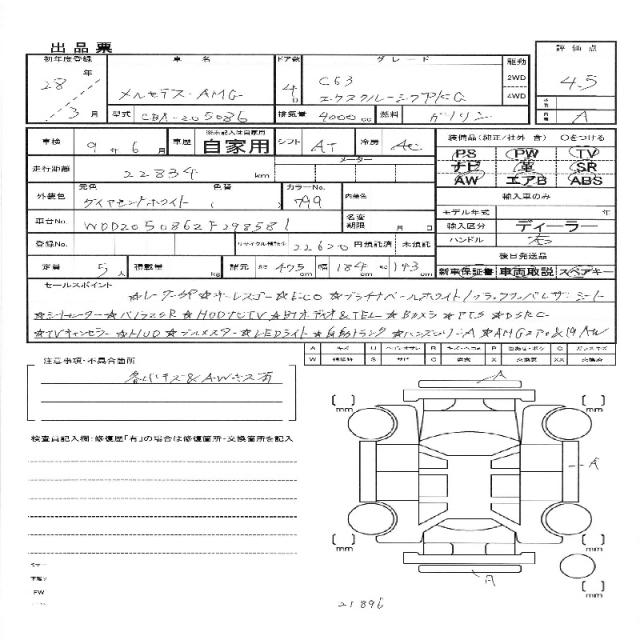 出品票
初年度登録 車名 ドア数 グレード 駆動 評価点
28年 メルセデス・AMG 4D C63 2WD 4.5
3月 エクスクルーシブPKG 4WD
型式 CBA-205086 排気量 4000cc 燃料 ガソリン A
車検 9年6月 車歴 ※未記入は自家用 自家用 シフト AT 冷房 AC 装備品(純正/社外 含) Oをつける
走行距離 22834 km メーター PS PW TV
ナビ 革 SR
AW エアB ABS
外装色 元色 ダイヤモンドホワイト 色替 ( ) カラーNo. 799 内装色 輸入車のみ
モデル年式 年
車台No. WDD2050862F298581 名変期限 月 日 輸入区分 ディーラー
登録No. リサイクル預託金 22620 円預託済 未預託 ハンドル 右
後日発送品
定員 5人 積載量 kg 諸元 長 475cm 幅 184cm 高 143cm 新車保証書 車両取説 スペアキー
セールスポイント ☆レーダーSP☆キーレスゴー☆ECO☆プラチナパールホワイト/ブラックフルレザーシート
☆シートヒーター☆パノラマSR☆HDDナビTV☆Btオーディオ&TEL☆Bカメラ☆PTS☆DSRC
☆TVキャンセラー☆HUD☆ブルメスター☆LEDライト☆自動トランク☆ハンズフリーA☆AMGエアロ&19AW
注意事項・不具合箇所
各所キズ&AWキズ有
A キズ U W S C X XX
検査員記入欄:修復歴「有」の場合は修復箇所・交換箇所を記入
A
[ ] mm [ ] mm
A
[ ] mm [ ] mm
A
[ ] mm
PW
21896